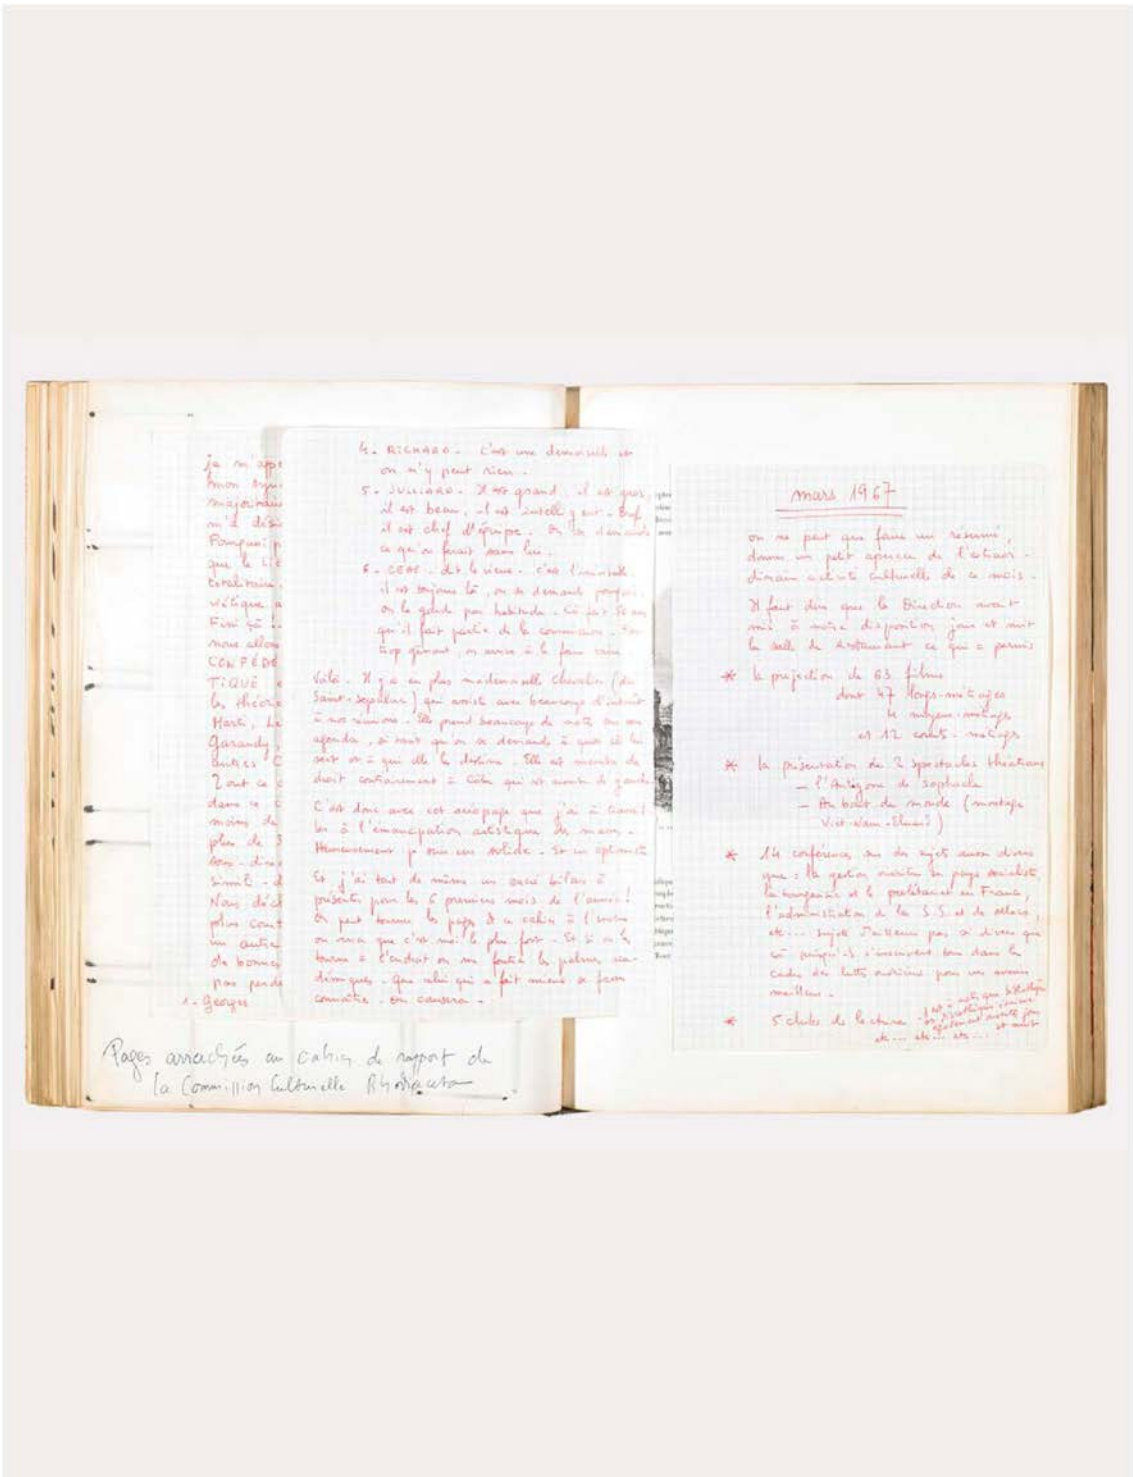 je m'app
mon
majoritaire
m'a
Pourquoi p
que la
totalitaire.
viétique a
Fini ça
nous allons
CONFÉDÉ
TIQUE
les théori
Marx, Le
Garaudy,
autres C
Tout ce c
dans ce c
moins de
plus de 3
sous-dire
simili-d
Nous décl
plus cour
un autre
de bonnes
pas perdu
1. Georges
4. RICHARD - C'est une demoiselle et
on n'y peut rien.
5. JULLIARD - Il est grand, il est gros,
il est beau, il est intelligent. Bref,
il est chef d'équipe. On se demande
ce qu'on ferait sans lui.
6. CEBE - dit le vieux - c'est l'inamovible.
il est toujours là, on se demande pourquoi,
on le garde par habitude. Cà fait 50 ans
qu'il fait partie de la commission.
trop gênant, on arrive à le faire taire.
Voilà. Il y a en plus mademoiselle Chevalier (du
Saint-Sépulcre) qui assiste avec beaucoup d'intérêt
à nos réunions. Elle prend beaucoup de notes sur son
agenda, si bien qu'on se demande à quoi cà lui
sert et à qui elle les destine. Elle est membre de
droit contrairement à Cèbe qui est membre de gauche
C'est donc avec cet aréopage que j'ai à travail
ler à l'émancipation artistique des masses.
Heureusement je suis un solide. Et un optimiste
Et j'ai tout de même un sacré bilan à
présenter pour les 6 premiers mois de l'année!
On peut tourner les pages de ce cahier à l'envers
on verra que c'est moi le plus fort. Et si on les
tourne à l'endroit on me foutra les palmes aca-
démiques. Que celui qui a fait mieux se fasse
connaître. On causera.
Pages arrachées au cahier de rapport de
la Commission Culturelle Rhodiaceta
mars 1967
on ne peut que faire un résumé,
donner un petit aperçu de l'extraor-
dinaire activité culturelle de ce mois.
Il faut dire que la Direction avait
mis à notre disposition jour et nuit
la salle de restaurant ce qui a permis
* la projection de 63 films
dont 47 longs-métrages
4 moyens-métrages
et 12 courts-métrages
* la présentation de 2 spectacles théâtraux
- l'Antigone de Sophocle
- Au bout du monde (montage
Viet-Nam-Eluard)
* 14 conférences sur des sujets aussi divers
que : la gestion ouvrière en pays socialiste,
la bourgeoisie et le prolétariat en France,
l'administration de la S.S. et des allocs,
etc... sujets d'ailleurs pas si divers que
cà puisqu'ils s'inscrivent tous dans le
cadre des luttes ouvrières pour un avenir
meilleur.
* 5 clubs de lecture - à noter que bibliothèque
et discothèque
également ouverte jour
et nuit
etc... etc... etc...